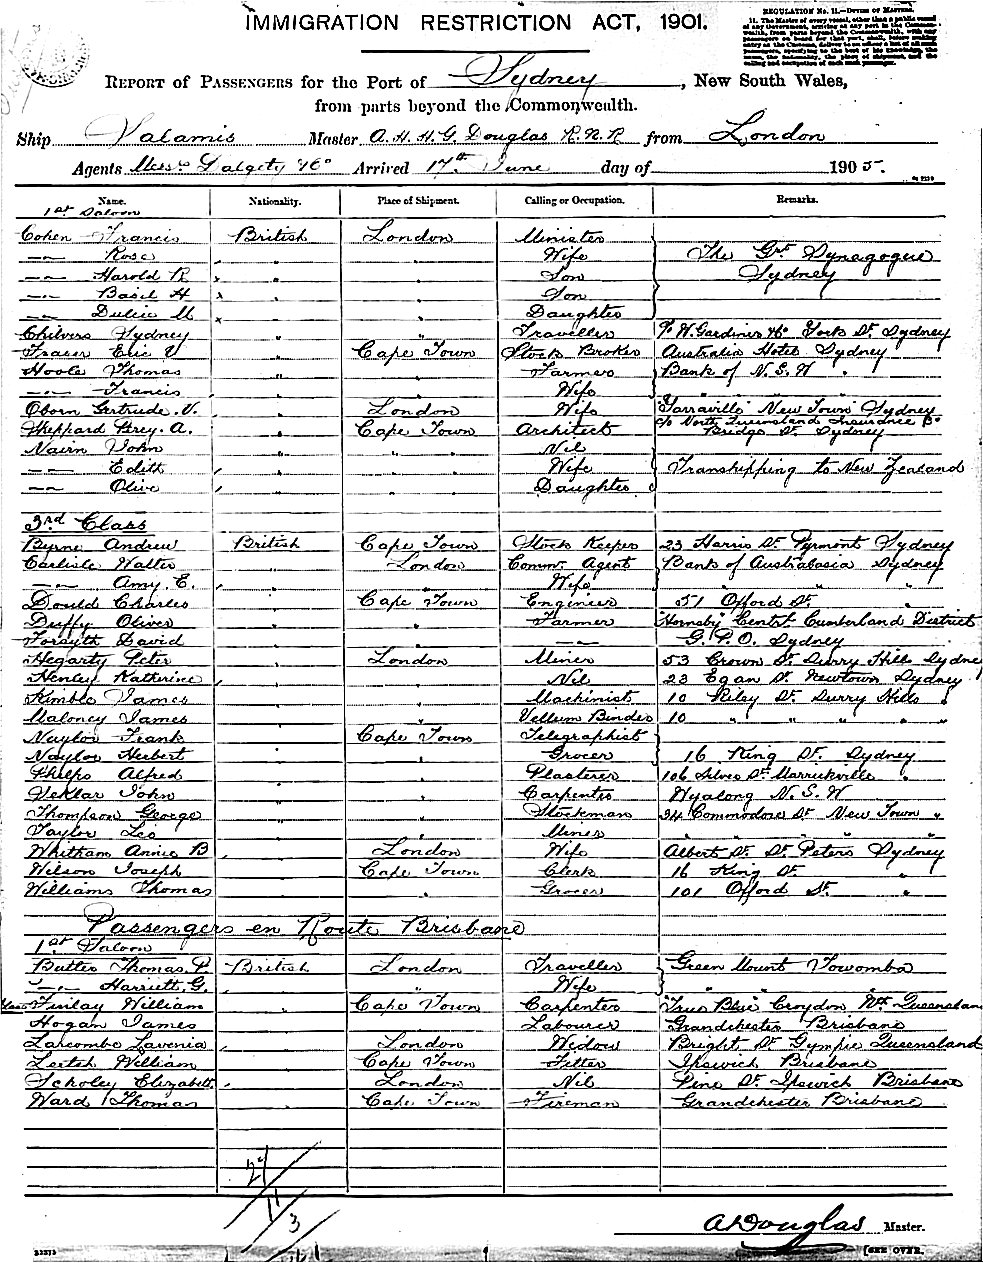 IMMIGRATION RESTRICTION ACT, 1901.
REGULATION No. 11.—DUTIES OF MASTERS.
11. The Master of every vessel, other than a public vessel
of any Government, arriving at any port in the Common-
wealth, from parts beyond the Commonwealth, with any
passengers on board for that port, shall, before making
entry at the Customs, deliver to an officer a list of all such
passengers, specifying to the best of his knowledge, the
name, the nationality, the place of shipment, and the
calling or occupation of each such passenger.
REPORT OF PASSENGERS for the Port of Sydney, New South Wales,
from parts beyond the Commonwealth.
Ship Salamis Master A. H. H. G. Douglas R.N.R from London
Agents Messrs Dalgety & Co Arrived 17th June day of 1905.
Name. Nationality. Place of Shipment. Calling or Occupation. Remarks.
1st Saloon
Cohen Francis British London Minister
—"— Rose " " Wife The Grt Synagogue
—"— Harold R " " Son Sydney
—"— Basil H " " Son
—"— Dulcie M " " Daughter
Chilvers Sydney " " Traveller c/o W. Gardiner & Co York St. Sydney
Fraser Eric V " Cape Town Stock Broker Australia Hotel Sydney
Hoole Thomas " " Farmer Bank of N.S.W "
—"— Francis " " Wife " "
Oborn Gertrude. V. " London Wife "Yarraville" New Town Sydney
Sheppard Percy. A. " Cape Town Architect c/o North Queensland Insurance Co Bridge St. Sydney
Nairn John " " " Nil
—"— Edith " " " Wife Transhipping to New Zealand
—"— Olive " " " Daughter
3rd Class
Byrne Andrew British Cape Town Stock Keeper 23 Harris St. Pyrmont Sydney
Carlisle Walter " London Comm. Agent Bank of Australasia Sydney
—"— Amy E. " " Wife " " "
Dould Charles " Cape Town Engineer 51 Offord St. "
Duffy Oliver " " Farmer "Hornsby" Centrl Cumberland District
Forsyth David " " —"— G.P.O. Sydney
Hegarty Peter " London Miner 53 Crown St. Surry Hills Sydney
Henley Katherine " " Nil 23 Egan St. Newtown Sydney
Kimble James " " Machinist 10 Riley St. Surry Hills "
Maloney James " " Vellum Binder 10 " " " "
Naylor Frank " Cape Town Telegraphist
Naylor Herbert " " Grocer 16 King St. Sydney
Phelps Alfred " " Plasterer 106 Silver St. Marrickville "
John " " Carpenter Wyalong N.S.W
Thompson George " " Stockman 34 Commodore St. New Town "
Taylor Leo " " Miner " " " "
Whitham Annie B " London Wife Albert St. St. Peters Sydney
Wilson Joseph " Cape Town Clerk 16 King St. "
Williams Thomas " " Grocer 101 Offord St. "
Passengers en Route Brisbane
1st Saloon
Butter Thomas. P. British London Traveller Green Mount Towomba
—"— Harriett, G. " " Wife " "
Finlay William " Cape Town Carpenter "True Blue" Croydon Nth Queensland
Hogan James " " Labourer Grandchester Brisbane
Larcombe Lavenia " London Widow Bright St. Gympie Queensland
William " Cape Town Fitter Ipswich Brisbane
Scholey Elizabeth " London Nil Pine St. Ipswich Brisbane
Ward Thomas " Cape Town Fireman Grandchester Brisbane
27/11/3
A Douglas Master.
[SEE OVER.